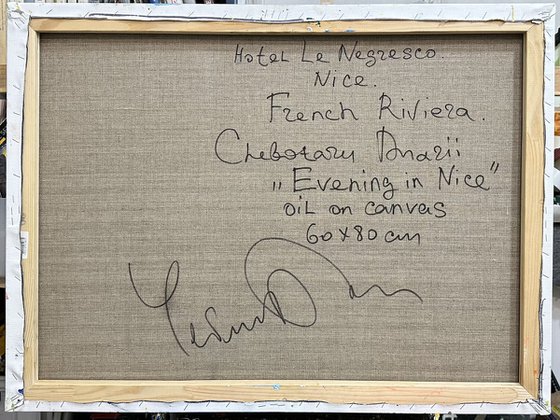 Hotel Le Negresco.
Nice.
French Riviera.
Chebotaru Anarii
„Evening in Nice”
oil on canvas
60x80 cm